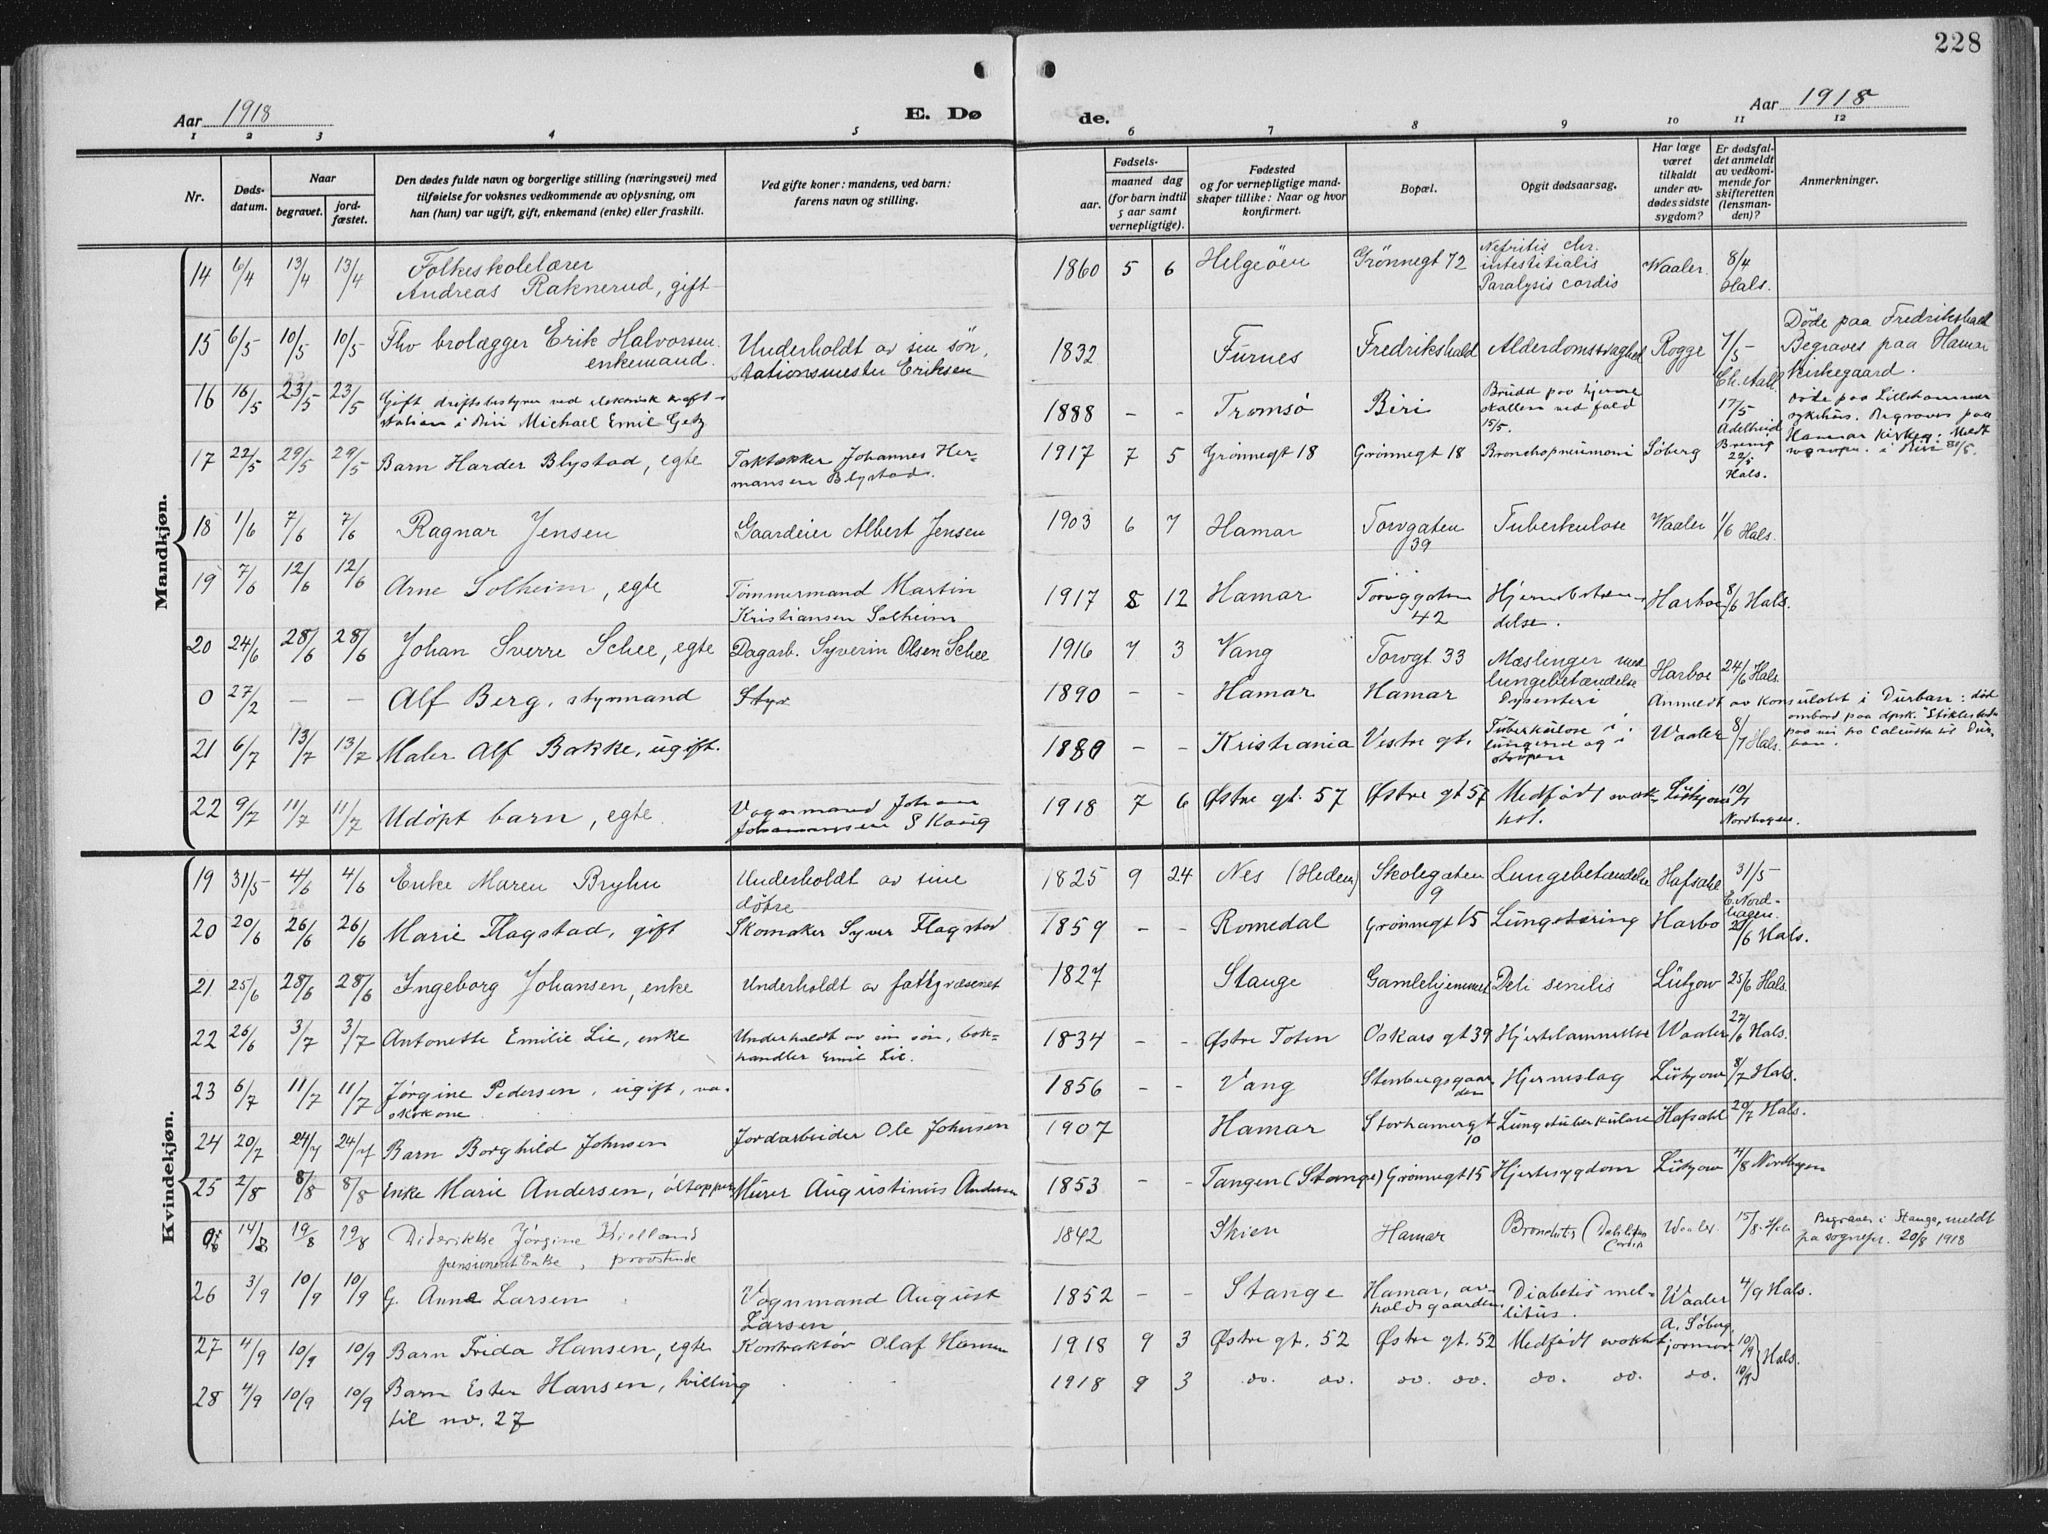 228
Aar 1918
E. Dø
de.
Aar 1918
1 2 3 4 5 6 7 8 9 10 11 12
Nr.
Døds-
datum.
Naar
begravet.
jord-
fæstet.
Den dødes fulde navn og borgerlige stilling (næringsvei) med
tilføielse for voksnes vedkommende av oplysning, om
han (hun) var ugift, gift, enkemand (enke) eller fraskilt.
Ved gifte koner: mandens, ved barn:
farens navn og stilling.
Fødsels-
aar.
maaned dag
(for barn indtil
5 aar samt
vernepligtige).
Fødested
og for vernepligtige mand-
skaper tillike: Naar og hvor
konfirmert.
Bopæl.
Opgit dødsaarsag.
Har læge
været
tilkaldt
under av-
dødes sidste
sygdom?
Er dødsfal-
det anmeldt
av vedkom-
mende for
skifteretten
(lensman-
den)?
Anmerkninger.
Mandkjøn.
14 6/4 13/4 13/4 Folkeskolelærer
Andreas Raknerud, gift
1860 5 6 Helgeöen Grönnegt 72 Nefritis chr.
intestitialis
Paralysis cordis
Waaler. 8/4
Hals.
15 6/5 10/5 10/5 Fhv brolægger Erik Halvorsen
enkemand.
Underholdt av sin sön,
stationsmester Eriksen
1832 Furnes Fredrikshald Alderdomssvaghed Rogge 7/5
Ch. Aall
Döde paa Fredrikshald
Begraves paa Hamar
kirkegaard.
16 16/5 23/5 23/5 Gift driftsbestyrer ved elektrisk kraft-
station i Biri Michael Emil Getz
1888 - - Tromsø Biri Brudd paa hjerne
skallen ved fald
15/5.
17/5
Adelheid
Brevig
døde paa Lillehammer
sykehus. Begraves paa
Hamar kirkeg. Meldt
17 22/5 29/5 29/5 Barn Harder Blystad, egte
Taktekker Johannes Her-
mansen Blystad.
1917 7 5 Grönnegt 18 Grönnegt 18 Bronchopneumoni Söberg 22/5
Hals.
18 1/6 7/6 7/6 Ragnar Jensen Gaardeier Albert Jensen
1903 6 7 Hamar Torvgaten
39
Tuberkulose Waaler 1/6 Hals.
19 7/6 12/6 12/6 Arne Solheim, egte Tömmermand Martin
Kristiansen Solheim
1917 8 12 Hamar Torvggaten
42
Hjernebetæn-
delse.
Harboe 8/6 Hals.
20 24/6 28/6 28/6 Johan Sverre Schee, egte Dagarb. Syverin Olsen Schee
1916 7 3 Vang Torvgt. 33 Mæslinger med
lungebetændelse
Harboe 24/6 Hals.
0 27/2 - - Alf Berg, styrmand Styr
1890 - - Hamar Hamar Dysenteri Anmeldt av konsulatet i Durban: død
ombord paa dpsk. "Stiklestad"
paa rei fra Calcutta til Dur-
ban.
21 6/7 13/7 13/7 Maler Alf Bakke, ugift.
1880 - - Kristiania Vestre gt. Tuberkulose i
lungerne og i
strupen
Waaler 8/7 Hals.
22 9/7 11/7 11/7 Udöpt barn, egte. Vognmand Johan
Johannesen Skavig
1918 7 6 Østre gt. 57 Østre gt 57 Medfödt svak-
het.
Lützow 10/7
Nordhagen.
Kvindekjøn.
19 31/5 4/6 4/6 Enke Maren Bryhn Underholdt av sine
døtre
1825 9 24 Nes (Hedem) Skolegaten
9
Lungebetændelse Hafsahl 31/5
E. Nord-
hagen.
20 20/6 26/6 26/6 Marie Flagstad, gift Skomaker Syver Flagstad
1859 - - Romedal Grönnegt 15 Lungetæring Harbo 20/6 Hals.
21 25/6 28/6 28/6 Ingeborg Johansen, enke Underholdt av fattigvæsenet
1827 Stange Gamlehjemmet Deli senilis Lützow 25/6 Hals.
22 26/6 3/7 3/7 Antonette Emilie Lie, enke Underholdt av sin sön, bok-
handler Emil Lie.
1834 - - Østre Toten Oskars gt 39 Hjertelammelse Waaler 27/6 Hals.
23 6/7 11/7 11/7 Jørgine Pedersen, ugift, va-
skekone.
1856 - - Vang Stenbergsgaar
den
Hjerneslag Lützow 8/7 Hals.
24 20/7 24/7 24/7 Barn Borghild Johnsen Jordarbeider Ole Johnsen
1907 Hamar Storhamergt
10
Lungetuberkulose Hafsahl 20/7 Hals.
25 2/8 8/8 8/8 Enke Marie Andersen, öltapper Murer Augustinus Andersen
1853 - - Tangen (Stange) Grönnegt 15 Hjertesygdom Lützow 4/8 Nordhagen
0 14/8 19/8 19/8 Diderikke Jørgine Kielland
pensioneret Enke, provstinde
1842 Skien Hamar Bronchitis (Debilitas
Cordis
Waaler 15/8 Hals Begraves i Stange, meldt
pa sognepr. 20/8 1918
26 3/9 10/9 10/9 G. Anne Larsen Vognmand August
Larsen
1852 - - Stange Hamar, av-
holdsgaarden
Diabetis mel-
litus.
Waaler 4/9 Hals.
27 4/9 10/9 10/9 Barn Frida Hansen, egte Kontraktør Olaf Hansen
1918 9 3 Østre gt. 52 Østre gt. 52 Medfödt svakhet A. Söberg,
jormor 10/9
28 4/9 10/9 10/9 Barn Ester Hansen, tvilling
til no. 27
1918 9 3 do. do. do. do. do. do. do. 10/9 Hals.